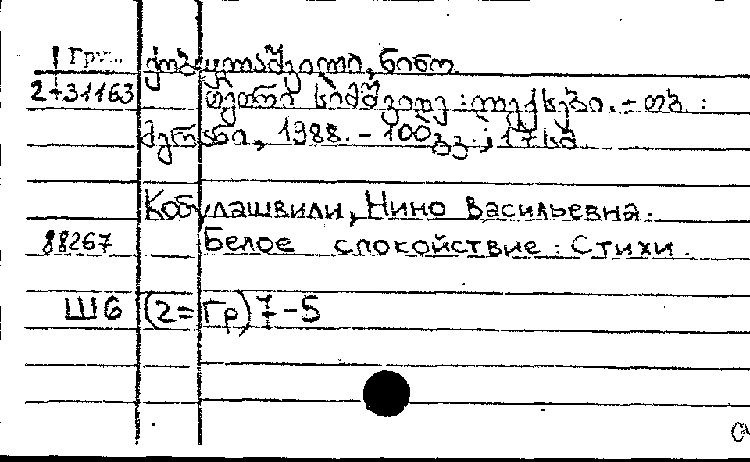 1 Груз. ქობულაშვილი, ნინო.
2-31163 თეთრი სიმშვიდე : ლექსები. - თბ. :
მერანი, 1988. - 100გვ. ; 17სმ
Кобулашвили, Нино Васильевна.
88267 Белое спокойствие : Стихи.
Ш6 (2=Гр) 7-5